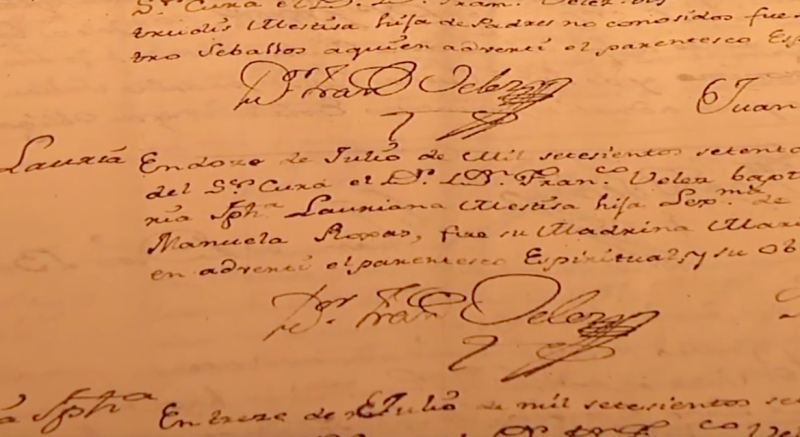 S.ᵒʳ Cura el D.ʳ D. Fran.ᶜᵒ Velez
trudis Mestisa hija de Padres no conosidos fue
tro Seballos aquien adverti el parentesco Esp
D.ʳ Fran.ᶜᵒ Velez
Juan
Lauriã Endoze de Julio de Mil setesientos setenta
del S.ᵒʳ Cura el D.ʳ D. Fran.ᶜᵒ Velez bapt
ria Jph.ᵃ Lauriana Mestisa hija Lex.ᵐᵃ de
Manuela Roxas, fue su Madrina Mar
en adverti el parentesco Espiritual, y su ob
D.ʳ Fran.ᶜᵒ Velez
a Jph.ᵃ Entreze de Julio de mil setesientos se